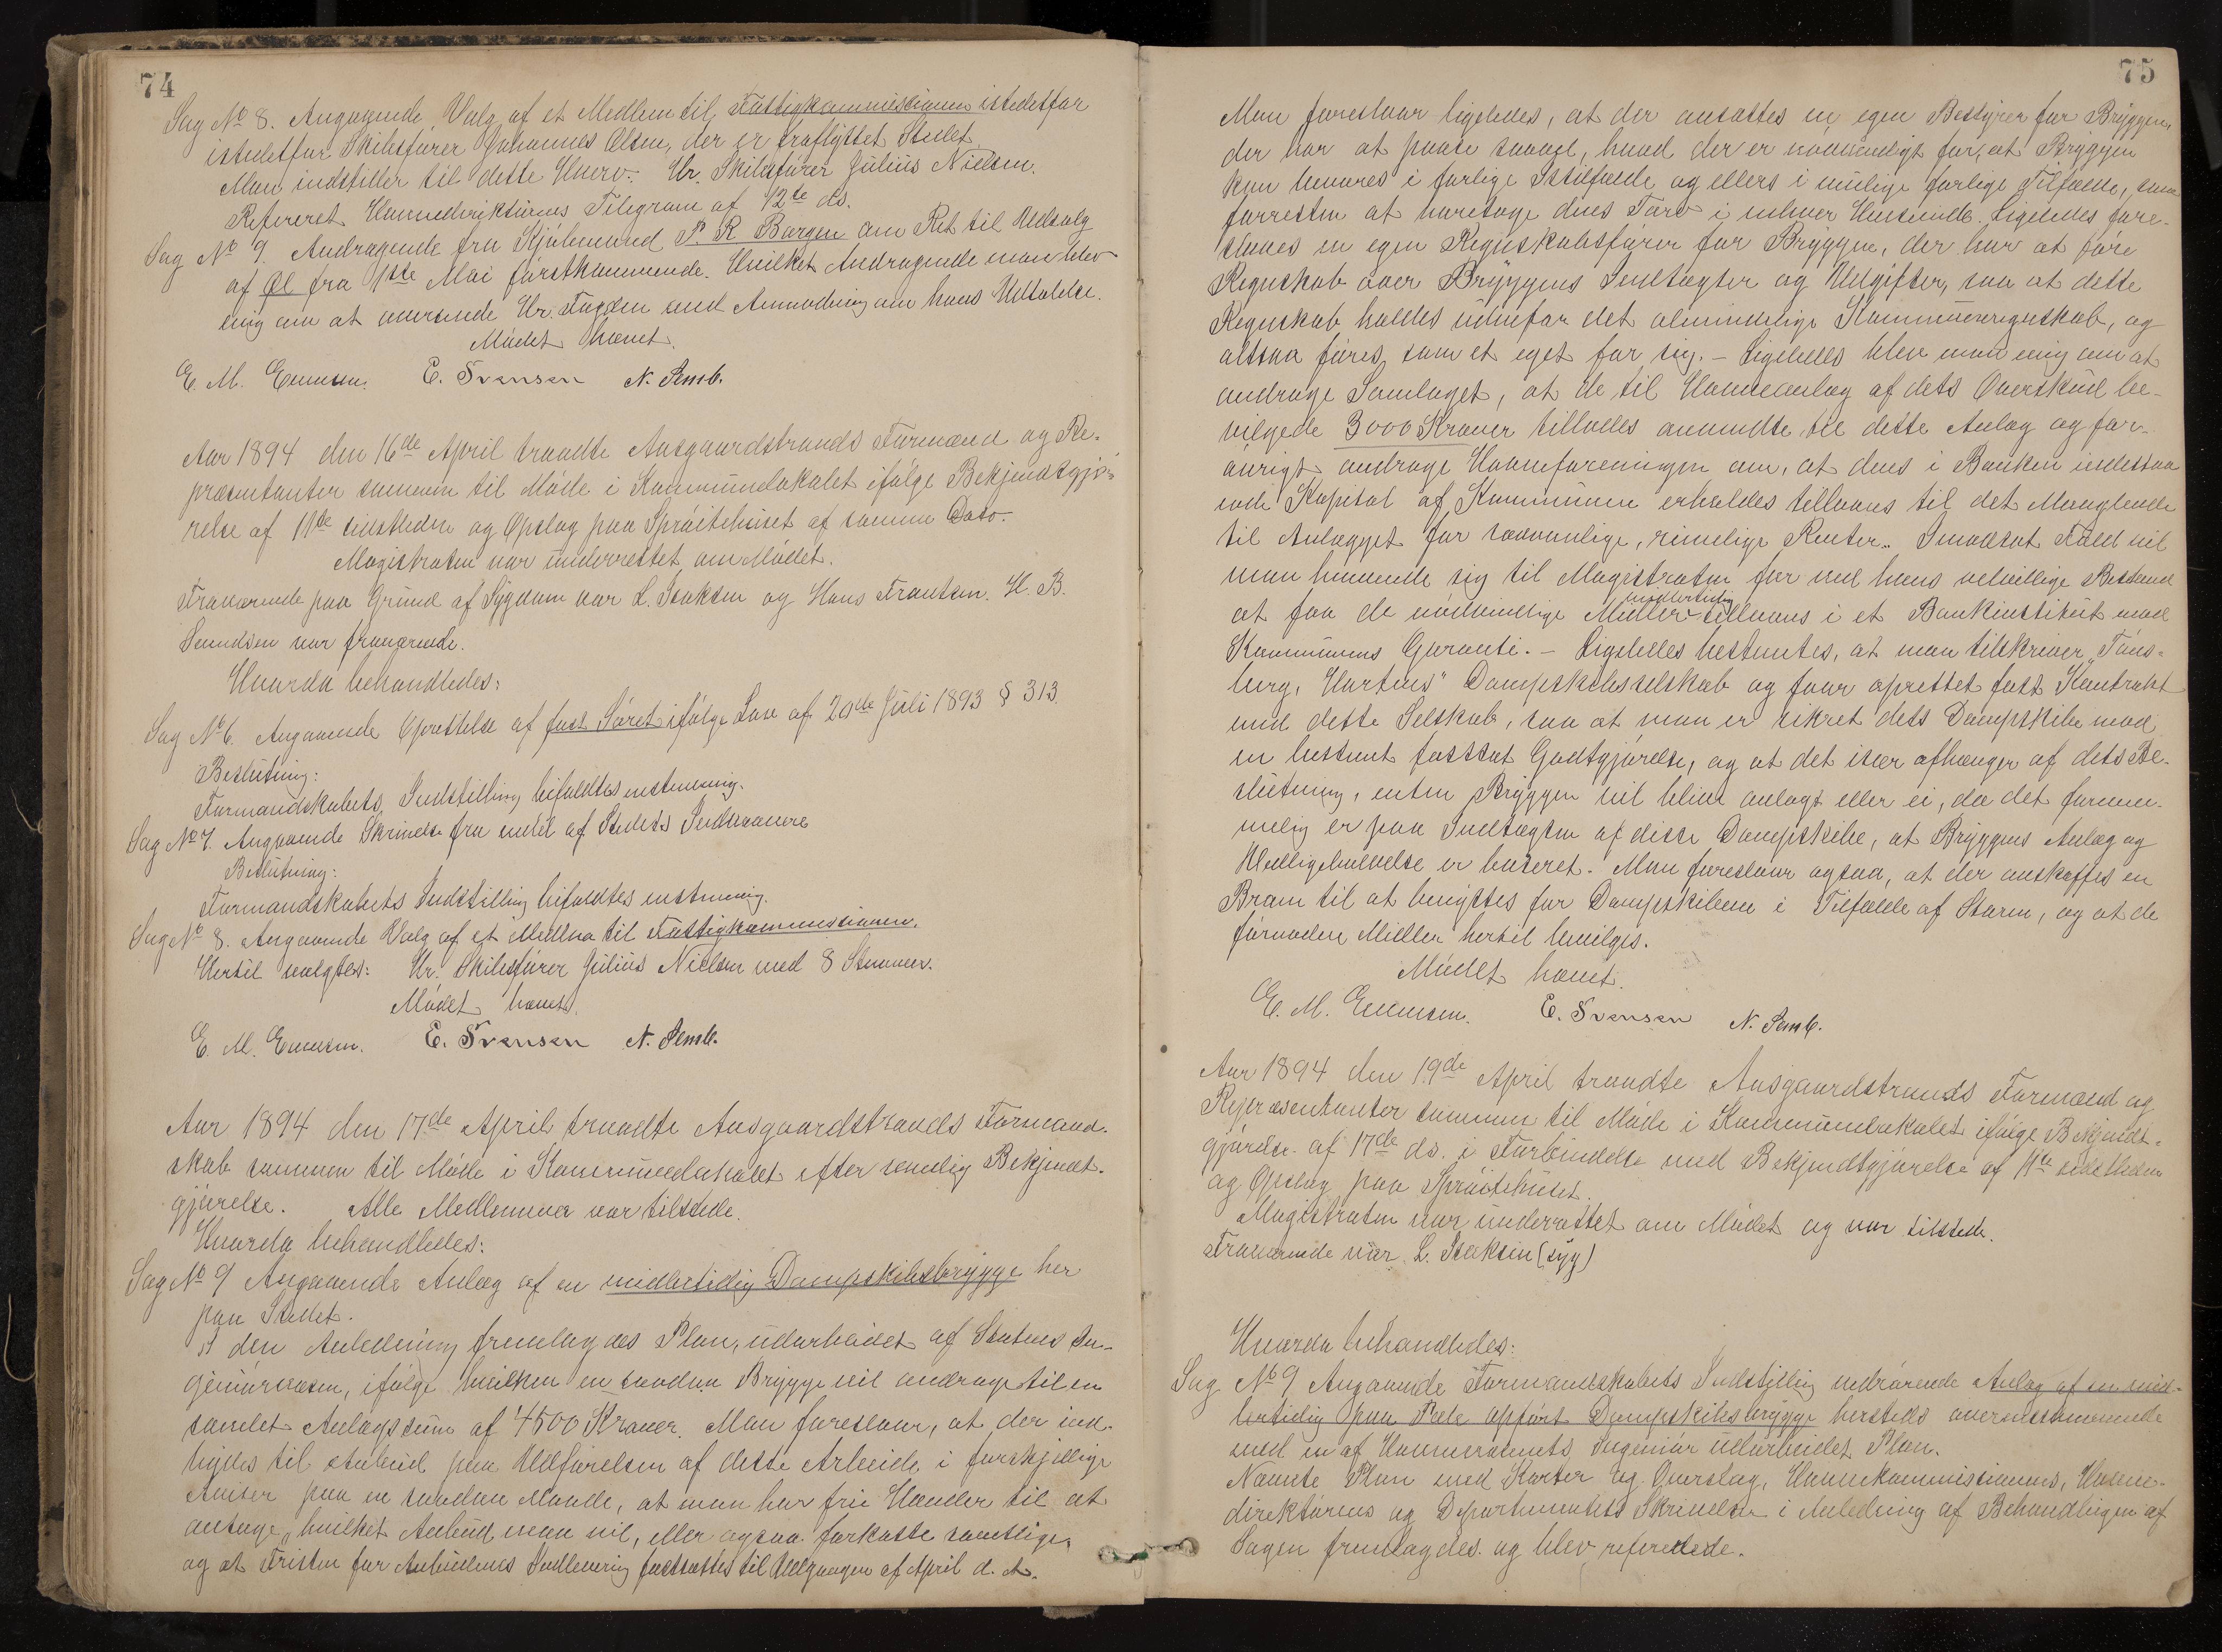 74
Sag No 8. Angaaende Valg af et Medlem til Fattigkommissionen istedetfor
istedetfor Skibsfører Johannes Olsen, der er fraflyttet Stedet.
Man indstiller til dette Hverv: Hr. Skibsfører Julius Nielsen.
Refereret Havnedirektørens Telegram af 12te ds.
Sag No 9. Andragende fra Skjøbmand P. R Borgen om Ret til Udsalg
af Øl fra 1ste Mai førstkommende. Hvilket Andragende man blev
enig om at oversende Hr. Fogden med Anmodning om hans Udtalelse.
Mødet hævet.
E. M. Evensen. E. Svensen N. Semb.
Aar 1894 den 16de April traadte Aasgaardstrands Formænd og Re-
præsentanter sammen til Møde i Kommunelokalet ifølge Bekjendtgjø-
relse af 11te sidstleden og Opslag paa Sprøitehuset af samme Dato.
Magistraten var underrettet om Mødet.
Fraværende paa Grund af Sygdom var L. Isaksen og Hans Frantsen. H. B.
Svendsen var fraværende.
Hvorda behandledes:
Sag No 6. Angaaende Oprettelse af fast Søret ifølge Lov af 20de Juli 1893 § 313
Beslutning:
Formandskabets Indstilling bifaldtes enstemmig.
Sag No 7. Angaaende Skrivelse fra endel af Stedets Indvaanere
Beslutning:
Formandskabets Indstilling bifaldtes enstemmig.
Sag No 8. Angaaende Valg af et Medlem til Fattigkommissionen.
Hertil valgtes: Hr. Skibsfører Julius Nielsen med 8 Stemmer.
Mødet hævet.
E. M. Evensen. E. Svensen N. Semb.
Aar 1894 den 17de April traadte Aasgaardstrands Formand-
skab sammen til Møde i Kommunelokalet efter sendlig Bekjendt-
gjørelse. Alle Medlemmer var tilstede.
Hvorda behandledes:
Sag No 9 Angaaende Anlæg af en midlertidig Dampskibsbrygge her
paa Stedet.
I den Anledning fremlagdes Plan, udarbeidet af Statens In-
geniørvæsen, ifølge hvilken en saadan Brygge vil andrage til en
samlet Anlægssum af 4500 Kroner. Man foreslaar, at der ind-
bydes til Anbud paa Udførelsen af dette Arbeide i forskjellige
Aviser paa en saadan Maade, at man har frie Hænder til at
antage, hvilket Anbud man vil, eller ogsaa forkaste samtlige,
og at Fristen for Anbudenes Indlevering fastsættes til Udgangen af April d. A.
75
Man foreslaar ligeledes, at der ansættes en egen Bestyrer for Bryggen,
der har at passe saavel, hvad der er nødvendigt for, at Bryggen
kan bevares i farlige Istilfælde og ellers i mulige farlige Tilfælde, som
forresten at varetage dens Tarv i enhver Henseende. Ligeledes fore-
slaaes en egen Regnskabsfører for Bryggen, der har at føre
Regnskab over Bryggens Indtægter og Udgifter, saa at dette
Regnskab holdes udenfor det almindelige Kommuneregnskab, og
altsaa føres som et eget for sig. – Ligeledes blev man enig om at
andrage Samlaget, at de til Havneanlæg af dets Overskud be-
vilgede 3000 Kroner tillades anvendte til dette Anlæg og for-
øvrigt andrage Havneforeningen om, at dens i Banken indestaa-
ende Kapital af Kommunen erholdes tillaans til det Manglende
til Anlægget for sædvanlige, rimelige Renter. I modsat Fald vil
man henvende sig til Magistraten for ved hans velvillige Bistand
midlertidig
at faa de nødvendlige Midler tillaans i et Bankinstitut mod
Kommunens Garanti. – Ligeledes bestemtes, at man tilskriver "Tøns-
berg, Hortens" Dampskibsselskab og faar oprettet fast Kontrakt
med dette Selskab, saa at man er sikret dets Dampskibe mod
en bestemt fastsat Godtgjørelse, og at det især afhænger af dets Be-
slutning, enten Bryggen vil blive anlagt eller ei, da det fornem-
melig er paa Indtægten af disse Dampskibe, at Bryggens Anlæg og
Vedligeholdelse er baseret. Man foreslaar ogsaa, at der anskaffes en
Pram til at benyttes for Dampskibene i Tilfælde af Storm, og at de
fornødne Midler hertil bevilges.
Mødet hævet.
E. M. Evensen. E. Svensen N. Semb.
Aar 1894 den 19de April traadte Aasgaardstrands Formænd og
Repræsentanter sammen til Møde i Kommunelokalet ifølge Bekjendt-
gjørelse af 17de ds. i Forbindelse med Bekjendtgjørelse af 11te sidstleden
og Opslag paa Sprøitehuset.
Magistraten var underrettet om Mødet og var tilstede.
Fraværende var L. Isaksen (syg)
Hvorda behandledes:
Sag No 9 Angaaende Formandskabets Indstilling vedrørende Anlæg af en mid-
lertidig paa Pæle opført Dampskibsbrygge hersteds overensstemmende
med en af Havnevæsenets Ingeniør udarbeidet Plan.
Nævnte Plan med Karter og Overslag, Havnekommissionens, Havne-
direktørens og Departementets Skrivelser i Anledning af Behandlingen af
Sagen fremlagdes og blev refererede.